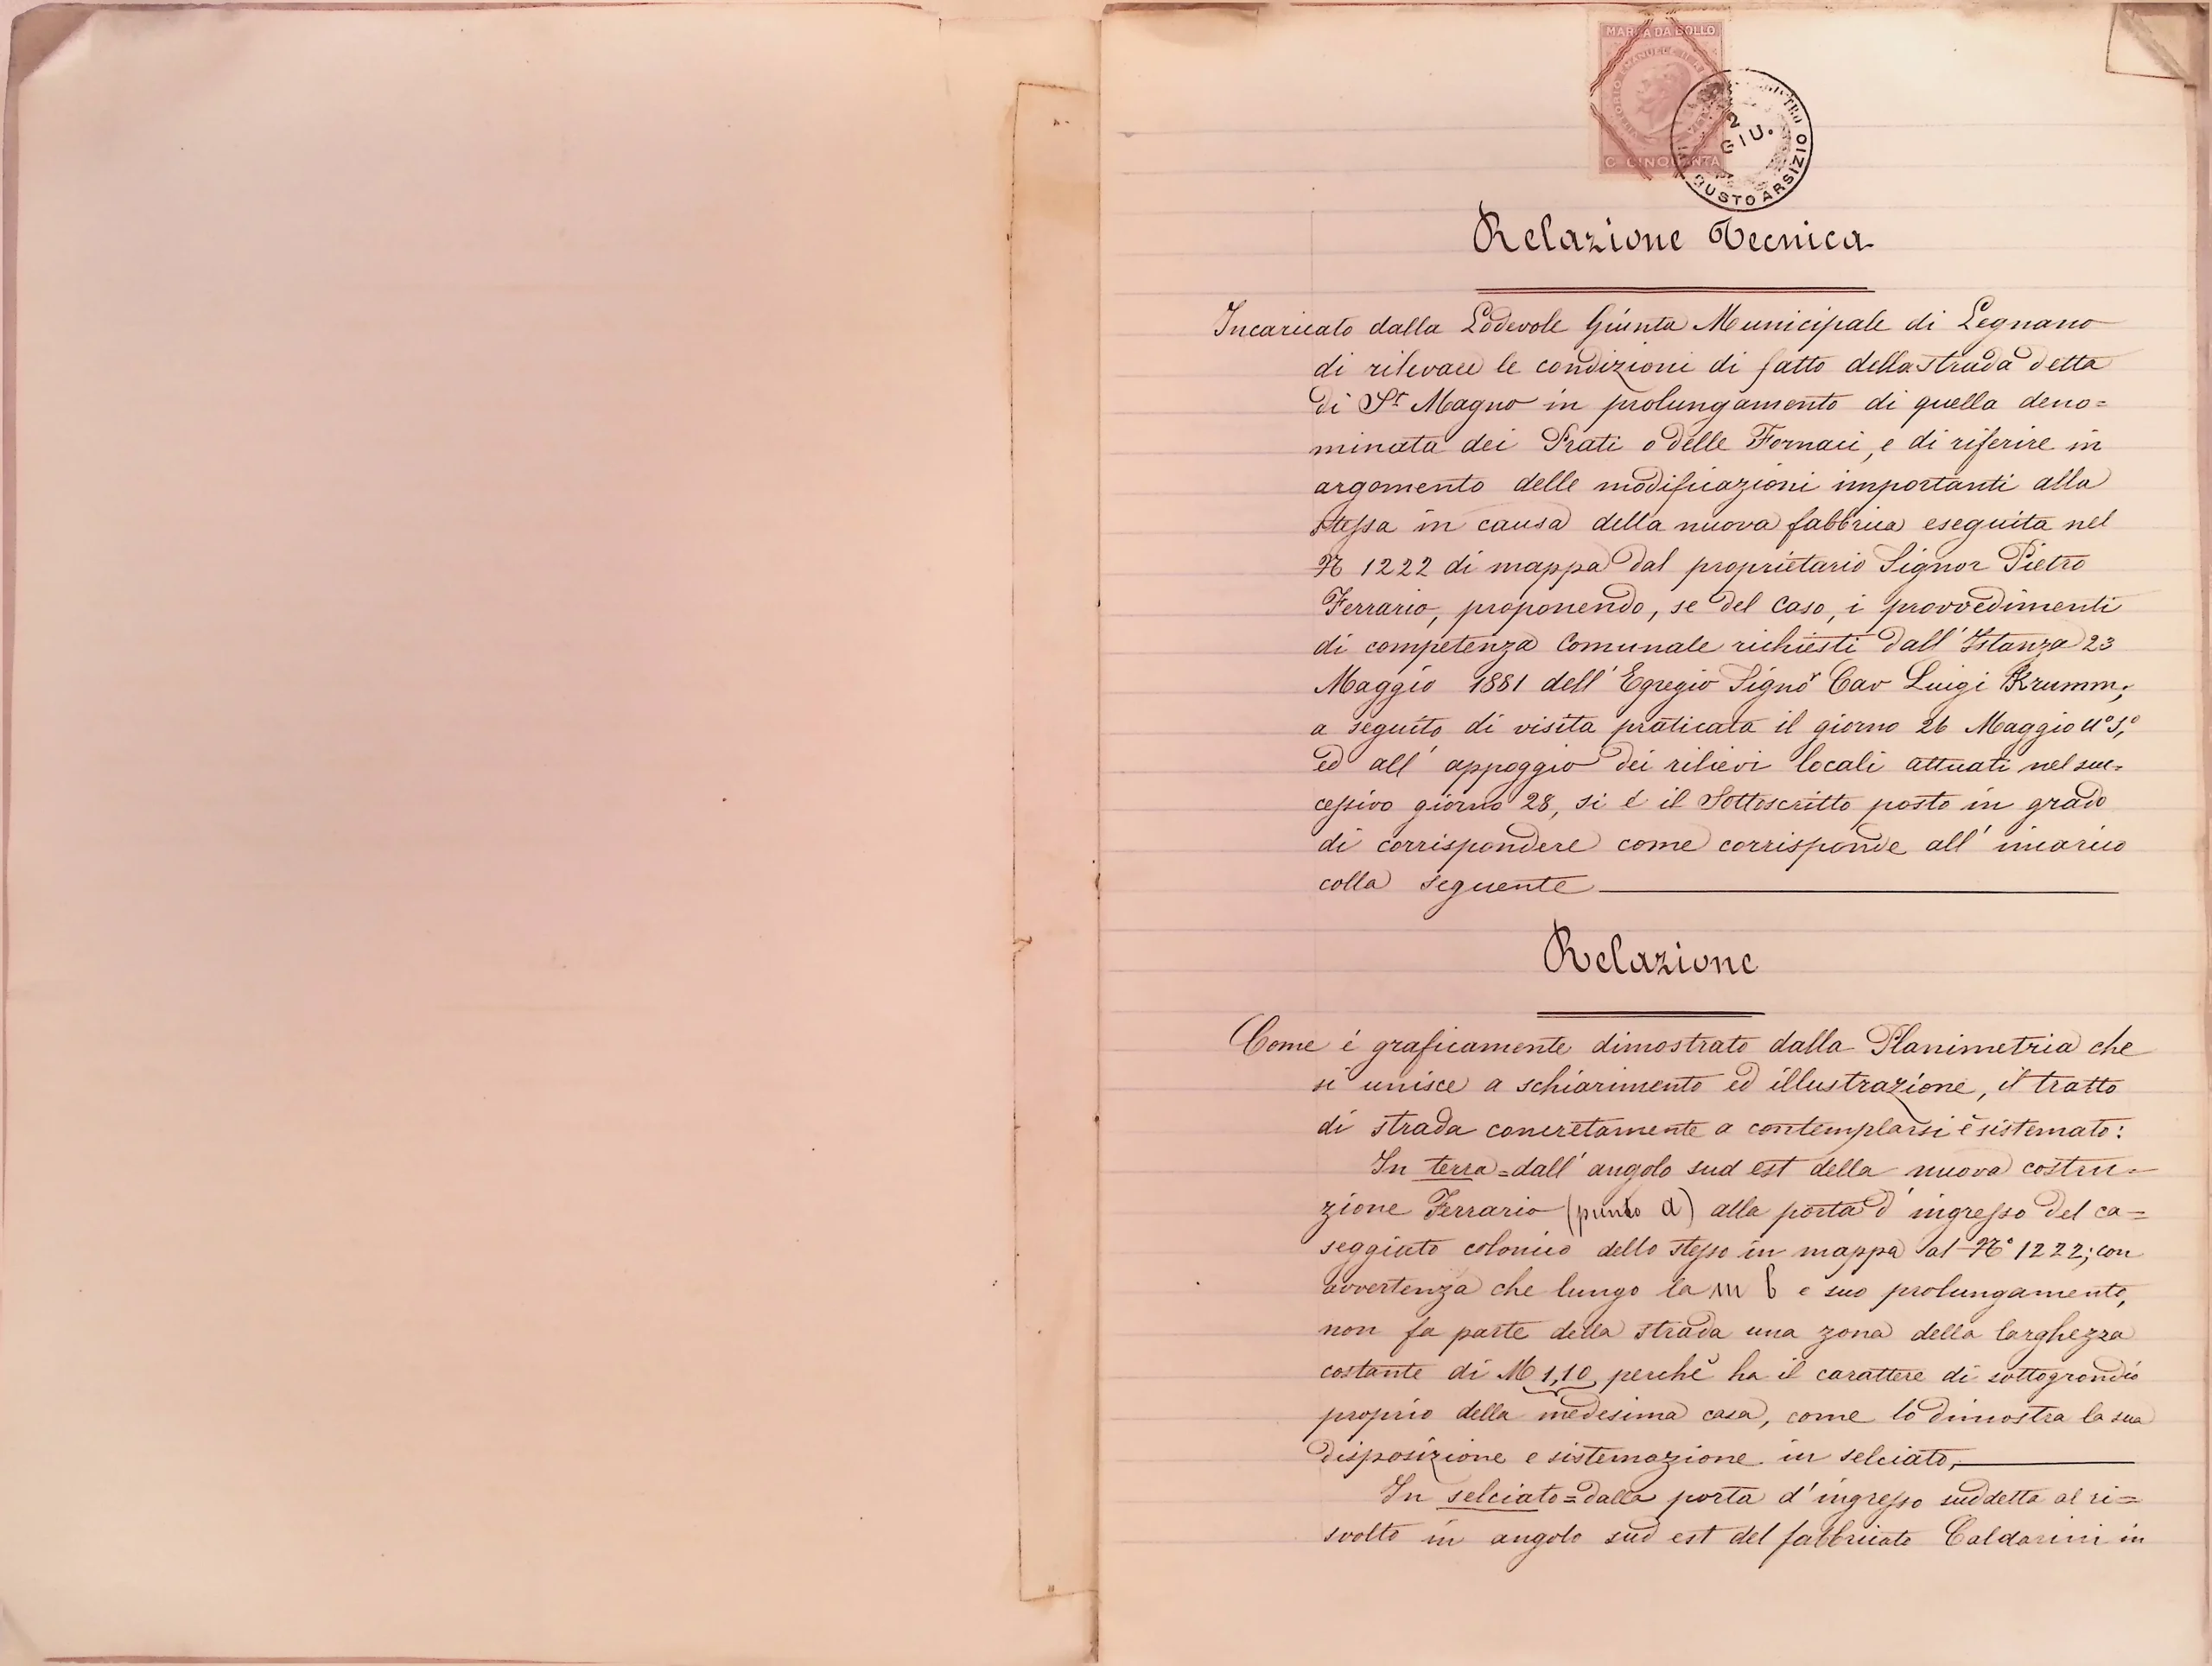 MARCA DA BOLLO
C. CINQUANTA
2
GIU.
BUSTO ARSIZIO
Relazione Tecnica
Incaricato dalla Lodevole Giunta Municipale di Legnano
di rilevare le condizioni di fatto della strada detta
di Sn Magno in prolungamento di quella deno=
minata dei Prati o delle Fornaci, e di riferire in
argomento delle modificazioni importanti alla
stessa in causa della nuova fabbrica eseguita nel
N 1222 di mappa dal proprietario Signor Pietro
Ferrario, proponendo, se del caso, i provvedimenti
di competenza Comunale richiesti dall' Istanza 23
Maggio 1881 dell' Egregio Signor Cav Luigi Krumm;
a seguito di visita praticata il giorno 26 Maggio uº sº,
ed all' appoggio dei rilievi locali attuati nel suc-
cessivo giorno 28, si è il Sottoscritto posto in grado
di corrispondere come corrisponde all' incarico
colla seguente
Relazione
Come è graficamente dimostrato dalla Planimetria che
si unisce a schiarimento ed illustrazione, il tratto
di strada concretamente a contemplarsi è sistemato:
In terra = dall' angolo sud est della nuova costru-
zione Ferrario (punto a) alla porta d' ingresso del ca=
seggiato colonico dello stesso in mappa al Nº 1222; con
avvertenza che lungo la m b e suo prolungamento,
non fa parte della strada una zona della larghezza
costante di M 1,10 perchè ha il carattere di sottogrondio
proprio della medesima casa, come lo dimostra la sua
disposizione e sistemazione in selciato,
In selciato = dalla porta d' ingresso suddetta al ri=
svolto in angolo sud est del fabbricato Caldarini in